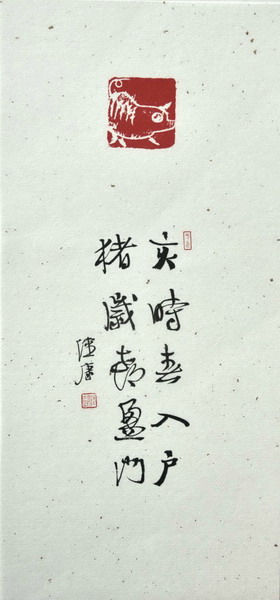 亥時春入户
猪歲喜盈門